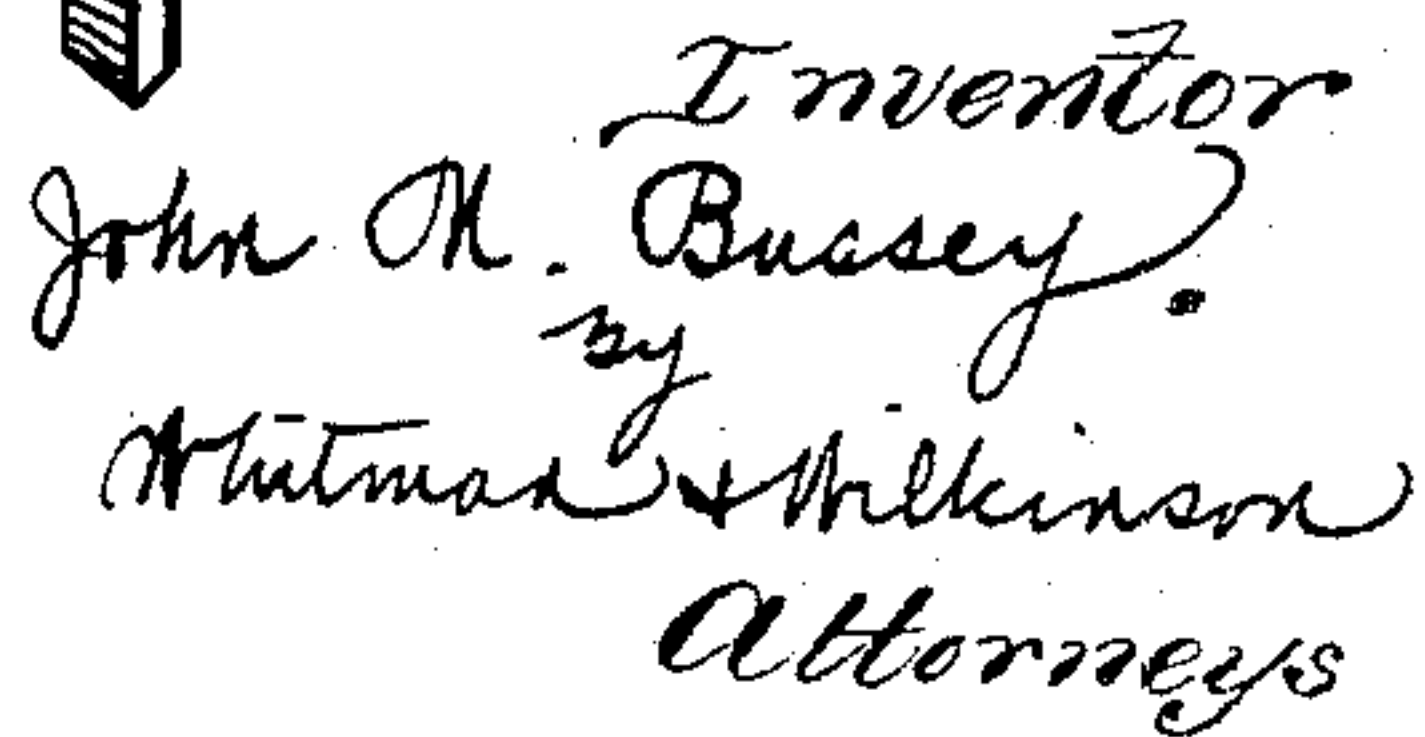 Inventor
John M. Bussey.
By
Whitman & Wilkinson
Attorneys